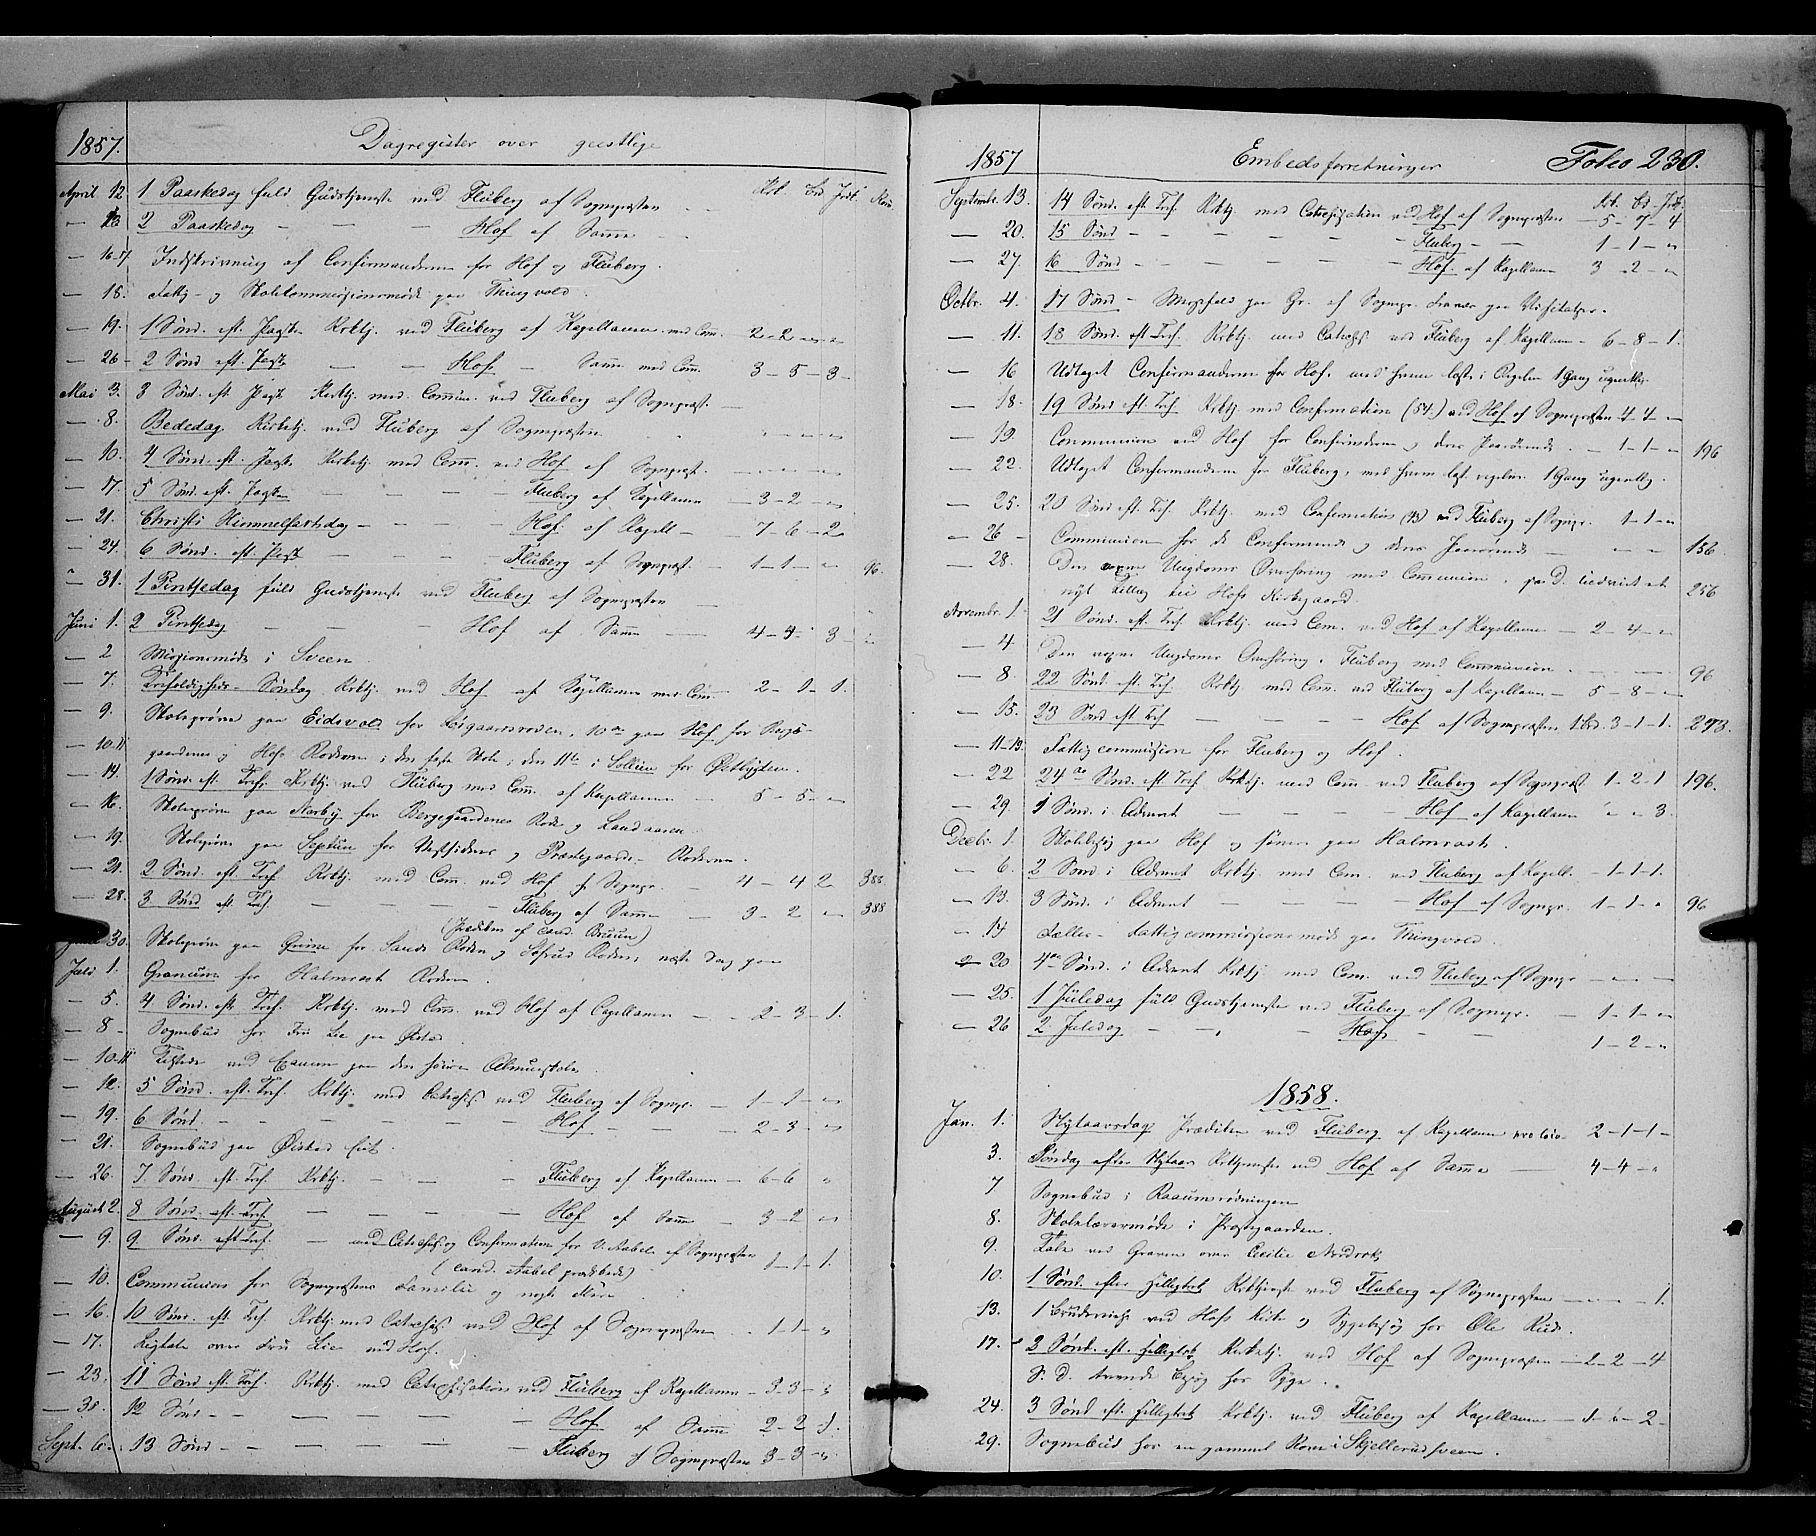 1857. Dagregister over geistlige
April 12 1 Paaskedag fuld Gudstjeneste ved Fluberg af Sognepræsten
— 13 2 Paaskedag — — — Hof af Samme
— 16-17 Indskrivning af Confirmanderne for Hof og Fluberg.
— 18. Fattig- og Skolekommissionsmøde paa Thingvold.
— 19. 1 Sønd. eft. Paaske Krktj. ved Fluberg af Kapellanen med Com. 2-2-"-"
— 26- 2 Sønd eft. Paaske — — Hof — Samme med Com. 3-5-3-
Mai 3. 3 Sønd. eft. Paaske Kirktj. med Commun. ved Fluberg af Sognepræst. —
— 8. Bededag Kirketj. ved Fluberg af Sognepræsten
— 10. 4 Sønd. eft. Paaske Kirketj. med Com. ved Hof af Sognepræst.
— 17. 5 Sønd. eft. Paasken — — — Fluberg af Kapellanen — 3-2-"
— 21. Christi Himmelfartsdag — — — Hof af Kapell — 7-6-2
— 24. 6 Sønd. eft. Paaske — — — Fluberg af Sognepræst. — 1-1-" 96.
" 31. 1 Pintsedag fuld Gudstjeneste ved Fluberg af Sognepræsten —
Juni 1. 2 Pintsedag — — — Hof af Samme — 4-4-3
— 2 Missionsmøde i Sveen
— 7. Trefoldigheds-Søndag Krktj. ved Hof af Kapellanen med Com — 2-1-1.
— 9. Skoleprøve paa Eidsvold for 10de paa Hof for
— 10-11 gaardenes og Hofs Roderne i den faste Skole; den 11te i Sollien for Østbygden.
— 14. 1 Sønd. eft. Tref. Krktj. ved Fluberg med Com. af Kapellanen — 5-5-"
— 16. Skoleprøve paa Narby for Bergegaardenes Rode og Landaasen.
— 19. Skoleprøve paa for Vestsidens og Præstegaards-Roderne.
— 21. 2 Sønd. eft. Tref. Krktj. med Com. ved Hof af Sognepr. — 4-4-2 388.
— 28. 3 Sønd eft. Tref. — — — Fluberg af Samme — 3-2-" 388
(Prædiken af Cand. Bruun)
30. Skoleprøve paa Grime for Lands Roden og Sofrud Rodens næste Dag paa
Juli 1. Granum for Halmrast Roden.
— 5. 4 Sønd. eft. Tref. Krktj. med Com. ved Hof af Capellanen — 2-3-1.
— 8- Sognebud hos Fru Lie paa
— 10-11 ved Examen paa den høiere Almueskole.
— 12. 5 Sønd. eft. Tref. Krktj. med Catechis ved Fluberg af Sognepr. — 1-1-"
— 19. 6 Sønd. — — — Hof — — 2-3-"
— 21. Sognebud paa
— 26. 7 Sønd. eft Tref. Krktj. — — Fluberg af Kapellanen — 6-6 "
August 2. 8 Sønd. eft. Tref. — — — Hof af Samme — 3-2-"
— 9. 9 Sønd. eft Tref. — med Catechis og Confirmation for af Sognepræsten 1-1-1.
(Cand. Aabel prædikede)
— 10. Communion for Sognepræstens Familie og
— 16. 10 Sønd. eft. Tref. Krktj. med Catechis ved Hof af Sognepræsten. 1-1-"
— 17. Ligtale over Fru Lie ved Hof.
— 23. 11 Sønd eft. Tref. Krktj. med Catechisation ved Fluberg af Kapellanen — 3-3-"
— 30. 12 Sønd — — — Hof af Samme 2-2-1.
Sept. 6. 13 Sønd — — — Fluberg af Sognepræsten 3-3-"
1857 Embedsforretninger Folio 230.
Septembr. 13. 14 Sønd. eft. Tref. Krktj. med Catechisation ved Hof af Sognepræsten 5-7-4
— 20. 15 Sønd — — — Fluberg — — 1-1-"
— 27. 16 Sønd — — — Hof af Kapellanen 3-2-"
Octbr. 4. 17 Sønd — Messefald paa Gr. af Sognepr. Fravær paa Visitatser.
— 11. 18 Sønd. eft Tref. Krktj. med Catechis. ved Fluberg af Kapellan — 6-8-1.
— 16 Udtaget Confirmanderne for Hof, med hvem læstes i Regelen 1 Gang ugentlig.
— 18. 19 Sønd eft Tref. Krktj med Confirmation (54.) ved Hof af Sognepræsten 4-4-"
— 19. Communion ved Hof for Confirmderne og deres Paarørende. — 1-1-" 196
— 22. Udtaget Confirmanderne for Fluberg, med hvem læst regelm. 1 Gang ugentlig.
— 25. 20 Sønd eft. Tref. Krktj. med Confirmation ved Fluberg af Sognepr. 1-1-"
— 26 — Communion for de Confirmerede og deres Paarørende — " " 156.
— 28. Den voxne Ungdoms Overhøring med Communion. s. D. indviet et
nyt Tillæg til Hofs Kirkegaard. 256
Novembr. 1. 21 Sønd. eft. Tref. Krktj. med Com. ved Hof af Kapellanen — 2-4-"
— 4 Den voxne Ungdoms Overhøring i Fluberg med Communion.
— 8. 22 Sønd. eft. Tref Krktj med Com. ved Fluberg af Kapellanen — 5-8-" 96
— 15. 23 Sønd eft Tref — — — Hof af Sognepræsten 3-1-1. 293.
— 11-13. Fattigcommission for Fluberg og Hof.
— 22 24de Sønd. eft Tref Krktj. med Com. ved Fluberg af Sognepræst 1-2-1 196.
— 29. 1 Sønd. i Advent — — — Hof af Kapellanen " " 3.
Decbr. 1. Skolebesøg paa Hof og paa Halmrast.
— 6. 2 Sønd i Advent Krktj. med Com. ved Fluberg af Kapell. — 1-1-1.
— 13. 3 Sønd. i Advent — — — Hof af Sognepr. 1-1-" 96
— 14 Fælles-Fattigcommissionsmøde paa Thingvold.
— 20 4de Sønd. i Advent Krktj med Com. ved Fluberg af Sognepr — — —
— 25. 1 Juledag fuld Gudstjeneste ved Fluberg af Sognepr. — 1-1-"
— 26 2 Juledag — — — Hof — — 1-2-"
1858.
Jan. 1. Nytaarsdag Prædiken ved Fluberg af Kapellanen 2-1-1-
3. Søndag efter Nytaar Krktjeneste ved Hof af Samme — 4-4-"
7 Sognebud i Raaumsrødningen
8. Skolelærermøde i Præstgaarden.
9. Tale ved Graven over Cecilie
10. 1 Sønd. efter Helligtrek Krktjenst ved Fluberg af Sognepræsten — — 1.
13. 1 Brudevielse ved Hofs Kirke og Sygebesøg hos Ole Rud.
17. 2 Sønd. eft. Helligtrek Kirketj. ved Hof af Sognepræsten — 2-2-4
S. D. Besøg hos Syge.
24. 3 Sønd eft. Helligtrek Krktj. ved Fluberg af Kapellanen — 1-"-2-
29. Sognebud hos en gammel Kone i Skjellerudsveen.